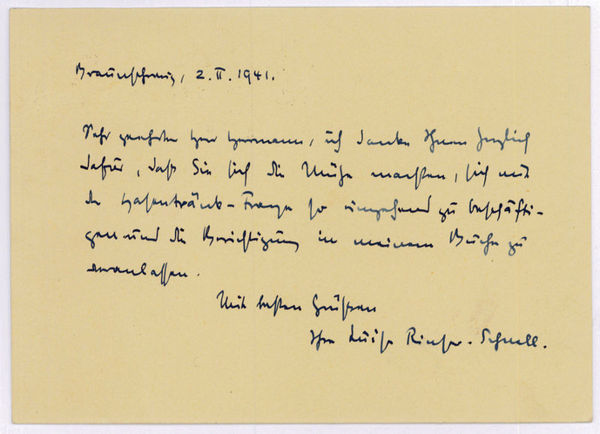 Braunschweig, 2.II.1941.
Sehr geehrter Herr Hermann, ich danke Ihnen herzlich
dafür, daß Sie sich die Mühe machten, sich mit
der Hasentränk-Frage so eingehend zu beschäfti-
gen und die Berichtigung in meinem Buche zu
veranlassen.
Mit besten Grüßen
Ihre Luise Rinser-Schnell.